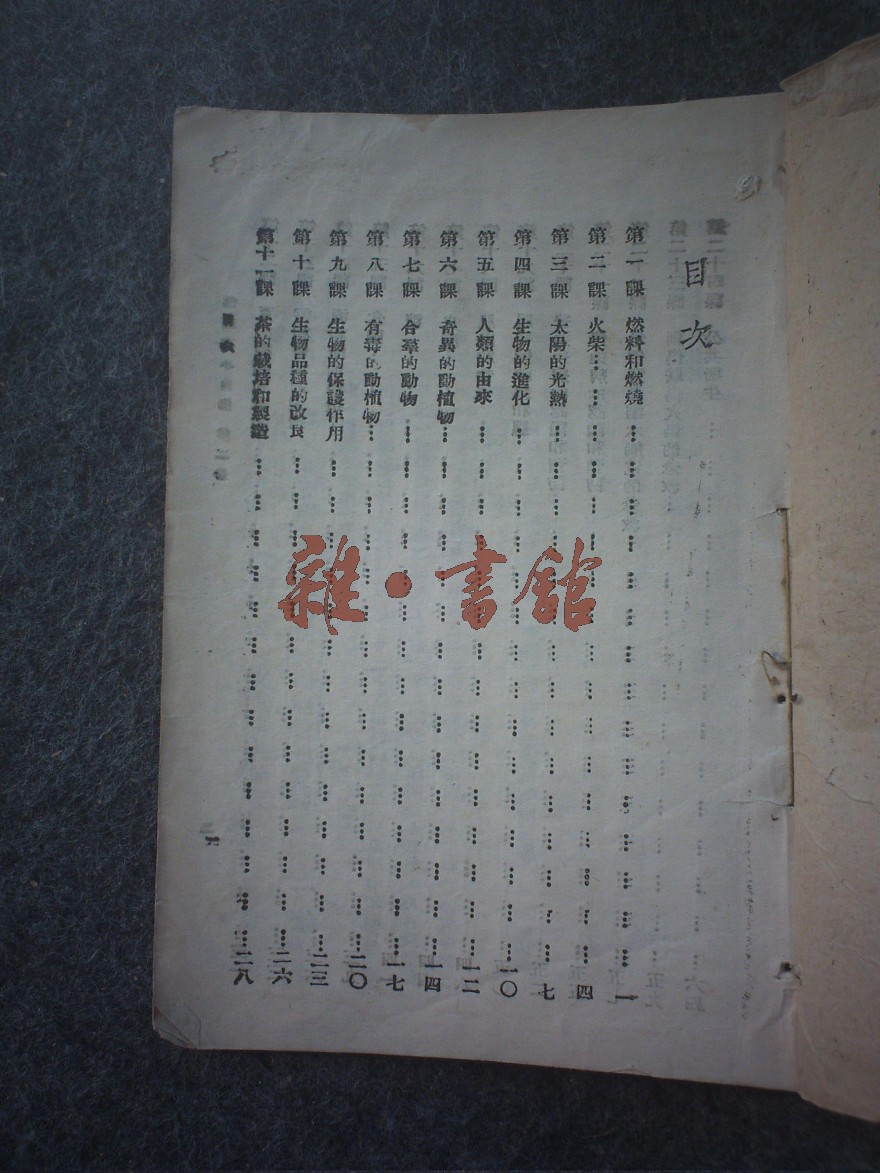 目次
第一課 燃料和燃燒………一
第二課 火柴………四
第三課 太陽的光熱………七
第四課 生物的進化………一〇
第五課 人類的由來………一二
第六課 奇異的動植物………一四
第七課 合羣的動物………一七
第八課 有毒的動植物………二〇
第九課 生物的保護作用………二三
第十課 生物品種的改良………二六
第十一課 茶的栽培和製造………二八
雜·書館